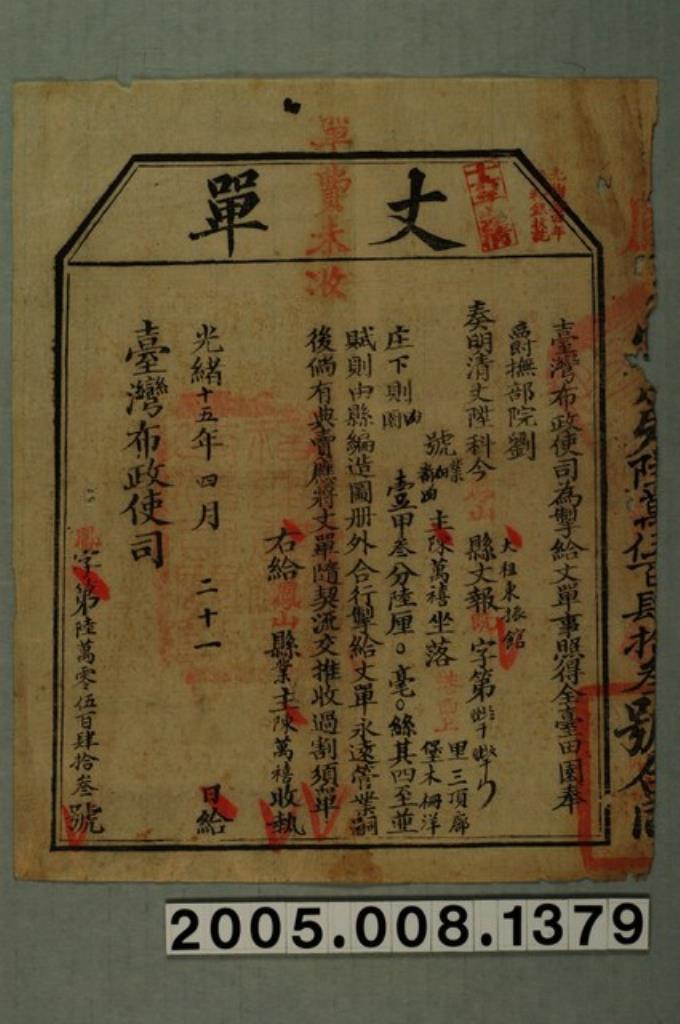 丈單
單費未收
臺灣布政使司為掣給丈單事照得全臺田園奉
爵撫部院劉
奏明清丈陞科今
縣丈報
字第
大租東振館
號
業主陳萬禧坐落
里三頂廍
堡木柵洋
庄下則
田
園
壹甲叁分陸厘。毫。絲其四至並
賦則由縣編造圖册外合行掣給丈單永遠管業嗣
後倘有典賣應將丈單隨契流交推收過割須單
右給鳳山縣業主陳萬禧收執
光緒十五年四月二十一日給
臺灣布政使司
鳳字第陸萬零伍百肆拾叁號
2005.008.1379